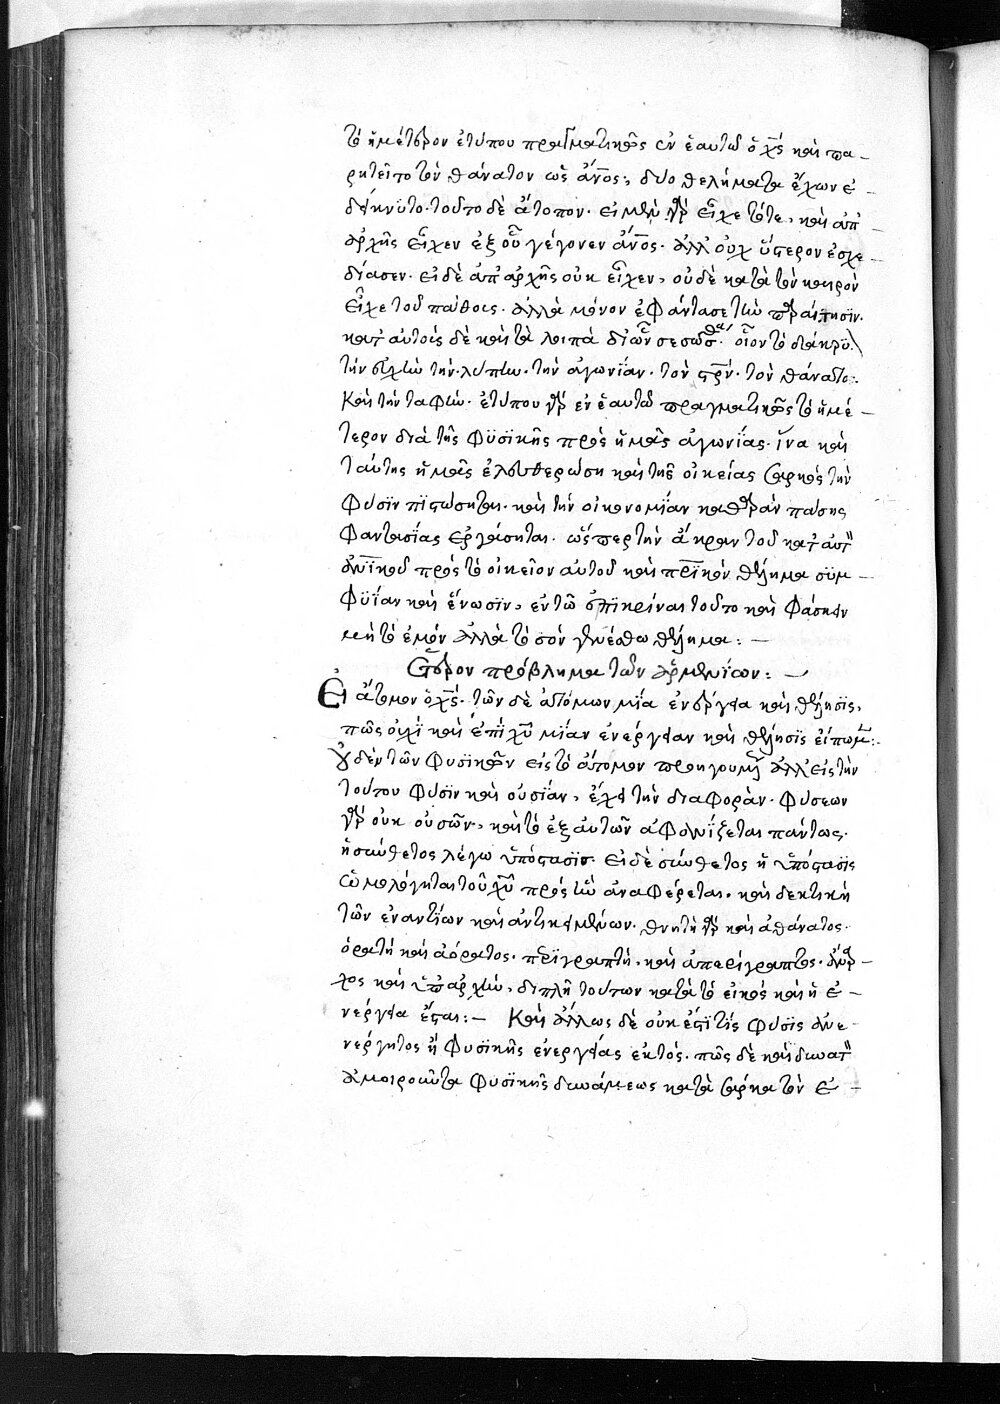 τὸ ἡμέτερον ἐτύπου πραγματικῶς ἐν ἑαυτῶ ὁ χς καὶ πα-
ρητεῖτο τὸν θάνατον ὡς ἄνος·, δύο θελήματα ἔχων ἐ-
δείκνυτο· τοῦτο δὲ ἄτοπον· εἰ μὲν γὰρ εἶχε τότε, καὶ ἀπ'
ἀρχῆς εἶχεν ἐξ οὗ γέγονεν ἄνος· ἀλλ' οὐχ ὕστερον ἐσχε-
δίασεν· εἰ δὲ ἀπ' ἀρχῆς οὐκ εἶχεν, οὐδὲ κατὰ τὸν καιρὸν
εἶχε τοῦ πάθους· ἀλλὰ μόνον ἐφάντασε τὴν παραίτησϊν·
κατ' αὐτοὺς δὲ καὶ τὰ λοιπὰ δι' ὧν σεσώσμεθα· οἷον τὸ δάκρϋ·
τὴν εὐχὴν τὴν λύπην· τὴν ἀγωνΐαν· τὸν στρν· τὸν θάνατο:·
Καὶ τὴν ταφὴν· ἐτύπου γὰρ ἐν ἑαυτῶ πραγματικῶς τὸ ἡμέ-
τερον διὰ τῆς φϋσϊκῆς πρὸς ἡμᾶς ἀγωνΐας· ἵνα καὶ
ταύτης ἡμᾶς ἐλευθερώση καὶ τῆς οἰκείας σαρκὸς τὴν
φύσϊν πϊστώσηται· καὶ τὴν οἰκονομΐαν καθαρὰν πάσης
φαντασΐας ἐργάσηται· ὥσπερ τὴν ἄκραν τοῦ κατ' αὐτὸν
ἀνϊκοῦ πρὸς τὸ οἰκεῖον αὐτοῦ καὶ πρϊκὸν θέλημα σϋμ-
φϋΐαν καὶ ἕνωσϊν, ἐν τῶ ἐπϊκρίναι τοῦτο καὶ φάσκειν
μὴ τὸ ἐμὸν ἀλλὰ τὸ σὸν γινέσθω θέλημα: —
Ἕτερον πρόβλημα τῶν ἀρμενΐων: —
Εἰ ἄτομον ὁ χς· τῶν δὲ ἀτόμων μΐα ἐνέργεια καὶ θέλησϊς,
πῶς οὐχὶ καὶ ἐπὶ χυ μίαν ἐνέργειαν καὶ θέλησϊς εἴπωμεν:·
Οὐδὲν τῶν φυσϊκῶν εἰς τὸ ἄτομον προηγουμένως ἀλλ' εἰς τὴν
τούτου φύσϊν καὶ οὐσΐαν, ἔχει τὴν διαφορὰν· φύσεων
γὰρ οὐκ οὐσῶν, καὶ τὸ ἐξ αὐτῶν ἀφανΐζεται πάντως·
ἡ σύνθετος λέγω ὑπόστασϊς· εἰ δὲ σύνθετος ἡ ὑπόστασϊς
ὡμολόγηται τοῦ χυ πρὸς ἣν ἀναφέρεται· καὶ δεκτικὴ
τῶν ἐναντΐων καὶ ἀντικειμένων· θνητὴ γὰρ καὶ ἀθάνατος·
ὁρατὴ καὶ ἀόρατος· περϊγραπτὴ, καὶ ἀπερίγραπτος· ἄναρ-
χος καὶ ὑπ' ἀρχὴν, διπλῆ τούτων κατὰ τὸ εἰκὸς καὶ ἡ ἐ-
νέργεια ἔσται: — Καὶ ἄλλως δὲ οὐκ ἔστϊ τίς φύσϊς ἀνε-
νέργητος ἢ φυσϊκῆς ἐνεργείας ἐκτὸς· πῶς δὲ καὶ δυνατὸν
ἀμοιροῦντα φυσϊκῆς δυνάμεως κατὰ σάρκα τὸν ἐ-